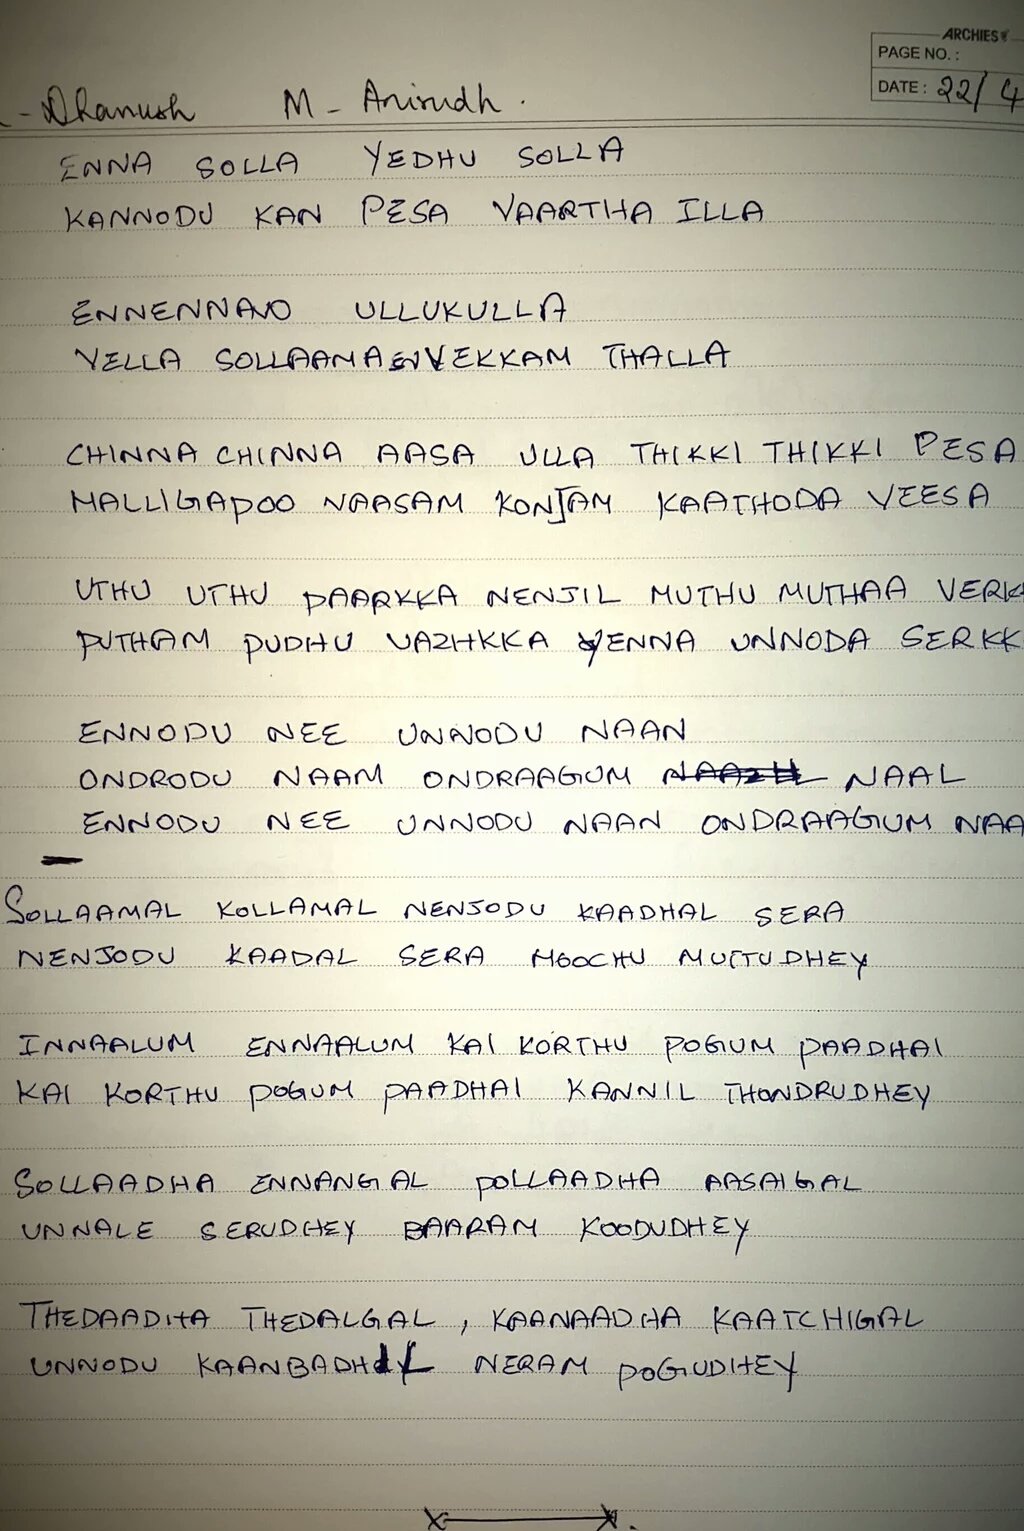 ARCHIES
PAGE NO. :
DATE : 22/4
- Dhanush M - Anirudh .
ENNA SOLLA YEDHU SOLLA
KANNODU KAN PESA VAARTHA ILLA
ENNENNAVO ULLUKULLA
VELLA SOLLAAMA EN VEKKAM THALLA
CHINNA CHINNA AASA ULLA THIKKI THIKKI PESA
MALLIGAPOO VAASAM KONJAM KAATHODA VEESA
UTHU UTHU PAARKKA NENJIL MUTHU MUTHAA VERK
PUTHAM PUDHU VAZHKKA YENNA UNNODA SERKK
ENNODU NEE UNNODU NAAN
ONDRODU NAAM ONDRAAGUM NAAL
ENNODU NEE UNNODU NAAN ONDRAAGUM NAA
SOLLAAMAL KOLLAMAL NENJODU KAADHAL SERA
NENJODU KAADAL SERA MOOCHU MUTTUDHEY
INNAALUM ENNAALUM KAI KORTHU POGUM PAADHAI
KAI KORTHU POGUM PAADHAI KANNIL THONDRUDHEY
SOLLAADHA ENNANGAL POLLAADHA AASAIGAL
UNNALE SERUDHEY BAARAM KOODUDHEY
THEDAADHA THEDALGAL , KAANAADHA KAATCHIGAL
UNNODU KAANBADHIL NERAM POGUDHEY